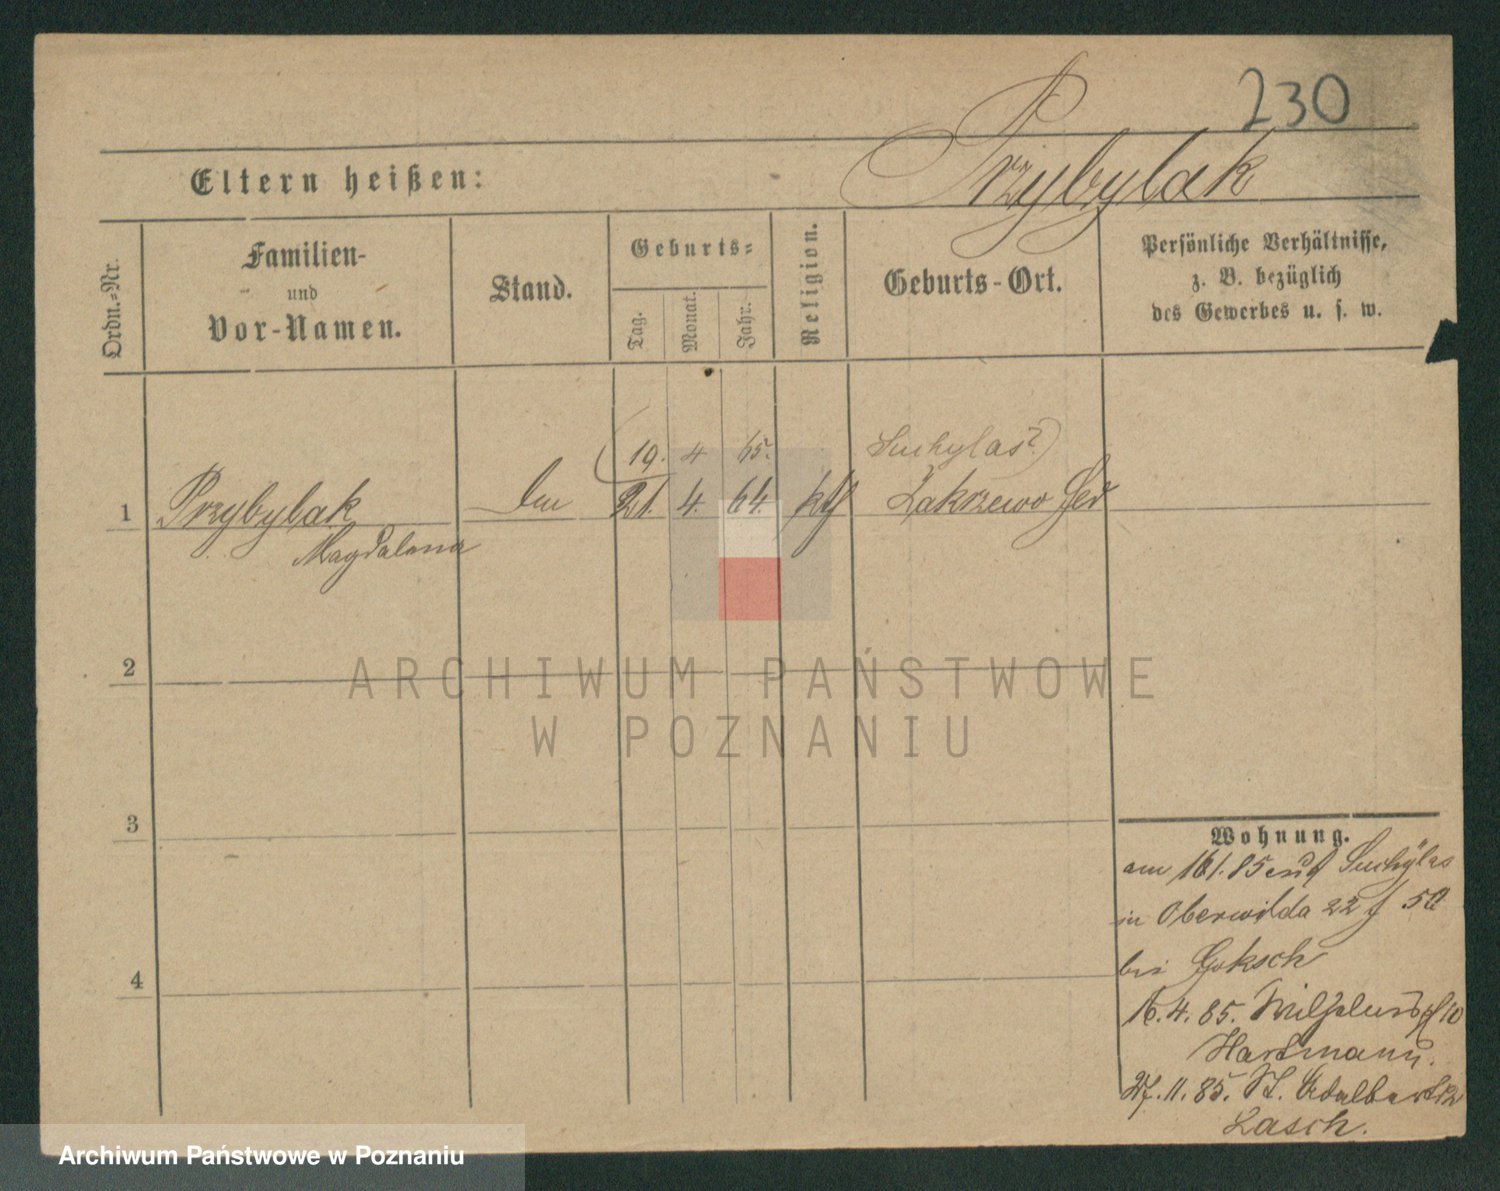 230
Eltern heißen: Przybylak
Ordn.-Nr.
Familien-
und
Vor-Namen.
Stand.
Geburts-
Tag.
Monat.
Jahr.
Religion.
Geburts-Ort.
Persönliche Verhältnisse,
z. B. bezüglich
des Gewerbes u. s. w.
(19. 4 65. Suchylas?)
1 Przybylak 21. 4. 64. kth Zakrzewo
Magdalena
2
3
4
Wohnung.
am 16 1. 85 Suchylas
in Oberwilda 22
bei
16. 4. 85. Wilhelmspl 10
Hartmann.
27. 11. 85. St. Adalbert 12
Lasch.
ARCHIWUM PAŃSTWOWE
W POZNANIU
Archiwum Państwowe w Poznaniu